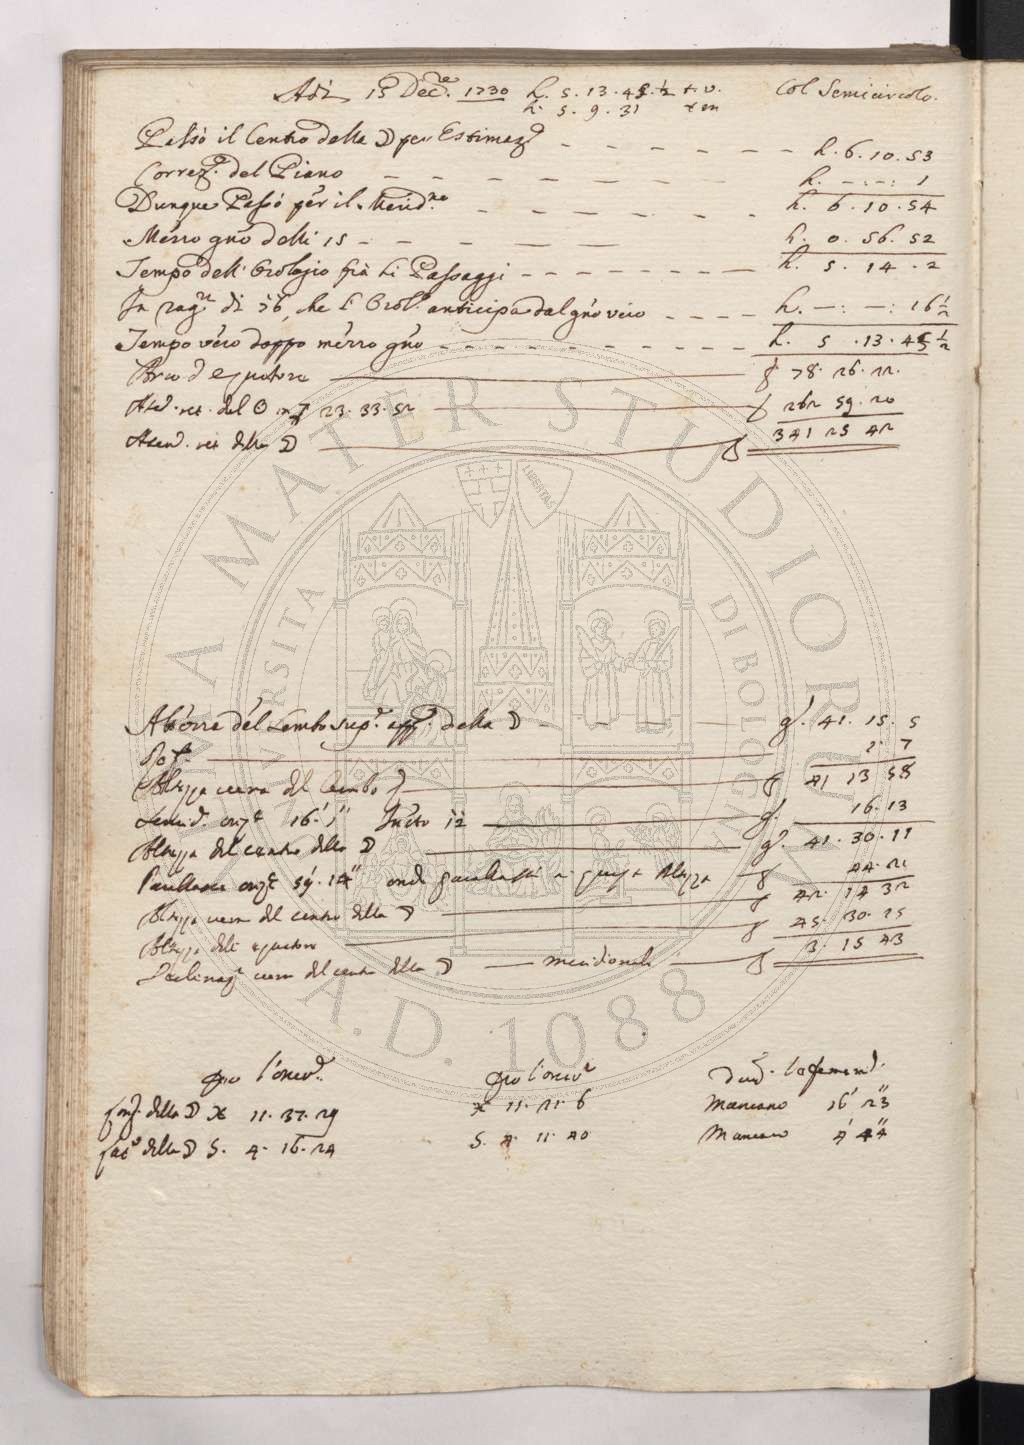 Adì 15 Dec.re 1730 h. 5. 13. 45. ½ t. v. Col Semicircolo.
h. 5. 9. 31 t m
Passò il Centro della ☽ per Estimaz.e h. 6. 10. 53
Correz.e del Piano h. —:—: 1
Dunque Passò per il Merid.no h. 6. 10. 54
Mezzo gno delli 15 h. 0. 56. 52
Tempo dell' Orologio frà li Passaggi h. 5. 14. 2
In rag.ne di 76, che l' Orol.o anticipa dal gno vero h. —: —: 16 ½
Tempo vero doppo mezzo gno h. 5. 13. 45 ½
Arco d' equatore g 78. 26. 22.
Asc. ret. del ☉ in ♐ 23. 33. 52 g 262 59. 20
Ascen. ret della ☽ g 341 25 42
Altezza del Lembo sup.e app.e della ☽ g. 41. 15. 5
Rof. 1. 7
Altezza vera del Lembo g 41 13 58
Semid. oriz.e 16' 1" 12 g. 16. 13
Altezza del centro della ☽ g. 41. 30. 11
Parallasse oriz.e 59. 14" onde a questa Altezza g 44. 21
Altezza vera del centro della ☽ g 42. 14 32
Altezza dell' equatore g 45. 30. 15
Declinaz.e vera del centro della ☽ meridionale g 3. 15 43
per l'osserv.e per l'
long. della ☽ ♓ 11. 37. 29 ♓ 11. 21. 6 Mancano 16' 23"
lat.e della ☽ S. 4. 16. 24 S. 4. 11. 40 Mancano 4' 44"
ALMA MATER STUDIORUM
UNIVERSITA DI BOLOGNA
LIBERTAS
A.D. 1088